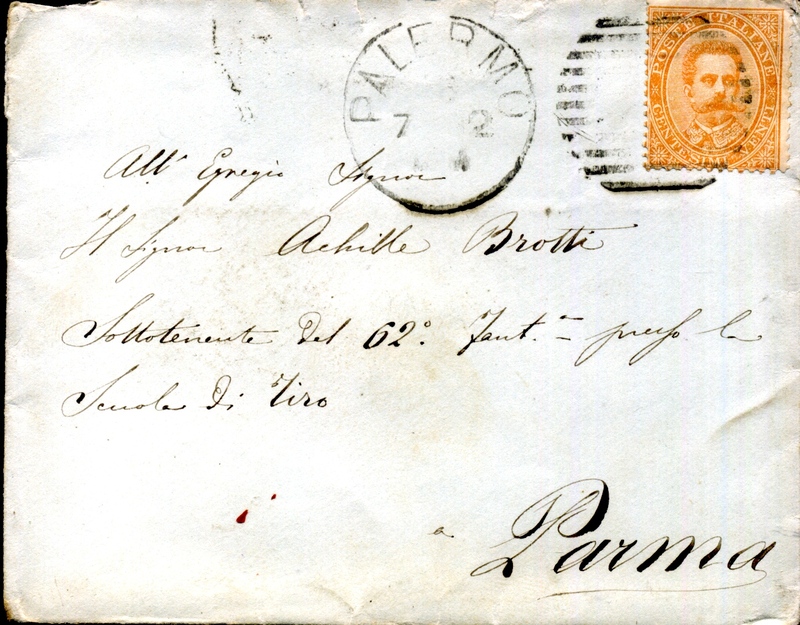 PALERMO
7 2
POSTE ITALIANE
CENTESIMI VENTI
All' Egregio Signor
Il Signor Achille Brotti
Sottotenente del 62º. Fant.ª presso la
Scuola di Tiro
a Parma